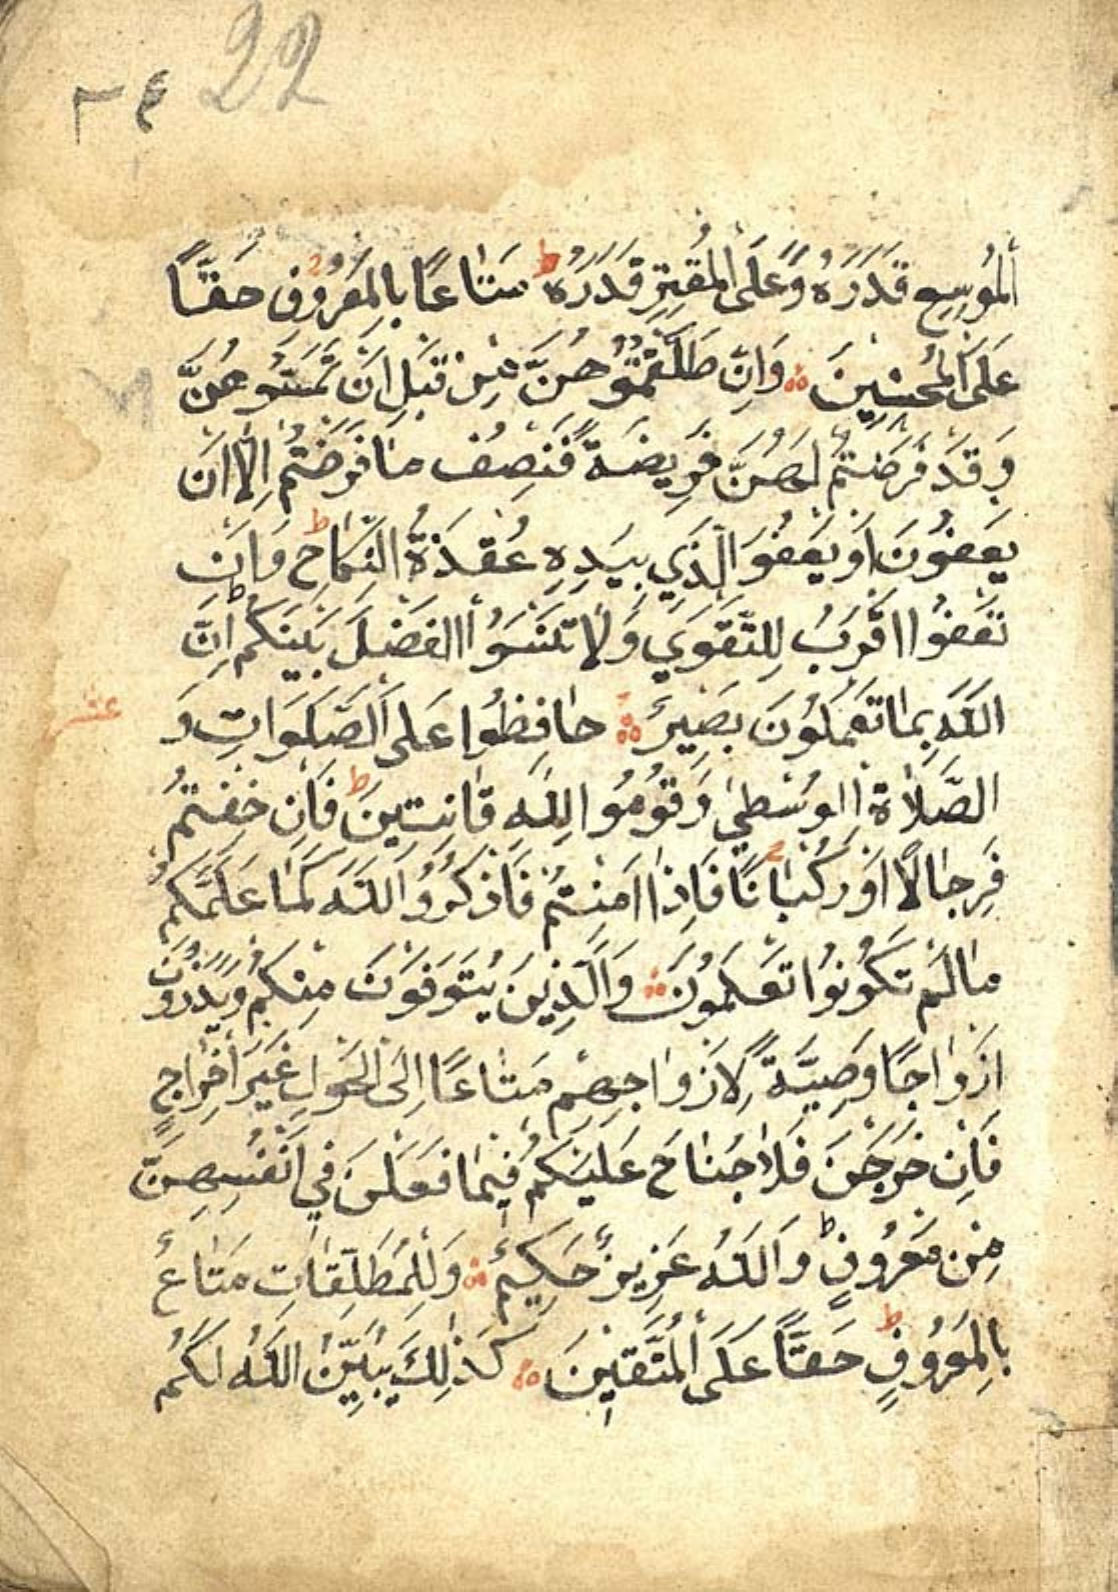 ٣٤ 22
اَلْمُوسِعِ قَدَرُهُ وَعَلَى الْمُقْتِرِ قَدَرُهُ ط مَتَاعًا بِالْمَعْرُوفِ حَقًّا
عَلَى الْمُحْسِنِينَ وَاِنْ طَلَّقْتُمُوهُنَّ مِنْ قَبْلِ اَنْ تَمَسُّوهُنَّ
وَقَدْ فَرَضْتُمْ لَهُنَّ فَرِيضَةً فَنِصْفُ مَا فَرَضْتُمْ اِلَّا اَنْ
يَعْفُونَ اَوْ يَعْفُوَ الَّذِي بِيَدِهِ عُقْدَةُ النِّكَاحِ ط وَاَنْ
تَعْفُوا اَقْرَبُ لِلتَّقْوَي وَلَا تَنْسَوُا الْفَضْلَ بَيْنَكُمْ ط اِنَّ
اللَّهَ بِمَا تَعْمَلُونَ بَصِيرٌ حَافِظُوا عَلَى الصَّلَوَاتِ وَ
عشر
الصَّلَاةِ الْوُسْطَي وَقُومُوا لِلَّهِ قَانِتِينَ ط فَاِنْ خِفْتُمْ
فَرِجَالًا اَوْ رُكْبَانًا فَاِذَا اَمِنْتُمْ فَاذْكُرُوا اللَّهَ كَمَا عَلَّمَكُمْ
مَا لَمْ تَكُونُوا تَعْلَمُونَ وَالَّذِينَ يُتَوَفَّوْنَ مِنْكُمْ وَيَذَرُونَ
اَزْوَاجًا وَصِيَّةً لِاَزْوَاجِهِمْ مَتَاعًا اِلَى الْحَوْلِ غَيْرَ اِخْرَاجٍ
فَاِنْ خَرَجْنَ فَلَا جُنَاحَ عَلَيْكُمْ فِيمَا فَعَلْنَ فِي اَنْفُسِهِنَّ
مِنْ مَعْرُوفٍ ط وَاللَّهُ عَزِيزٌ حَكِيمٌ وَلِلْمُطَلَّقَاتِ مَتَاعٌ
بِالْمَعْرُوفِ ط حَقًّا عَلَى الْمُتَّقِينَ كَذَلِكَ يُبَيِّنُ اللَّهُ لَكُمْ